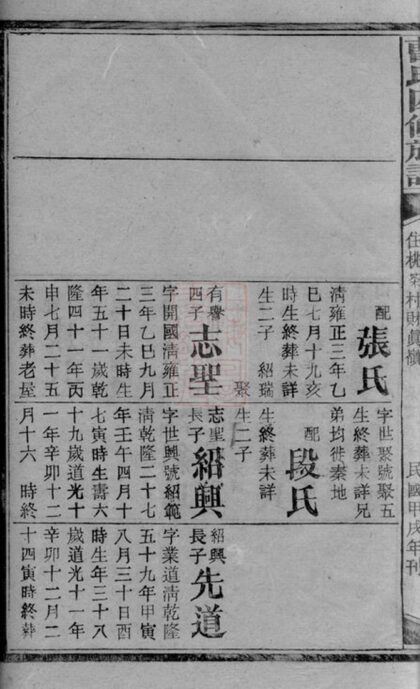 氏四修族譜
住桃
村財
民國甲戌年刊
配
張氏
清雍正三年乙
巳七月十九亥
時生終葬未詳
生二子 紹瑞
聚
字世聚號聚五
生終葬未詳兄
弟均徙秦地
配
段氏
生終葬未詳
生二子
有譽
四子
志聖
字開國清雍正
三年乙巳九月
二十日未時生
年五十一歲乾
隆四十一年丙
申七月二十五
未時終葬老屋
志聖
長子
紹興
字世興號紹範
清乾隆二十七
年壬午四月十
七寅時生壽六
十九歲道光十
一年辛卯十二
月十六 時終
紹興
長子
先道
字業道清乾隆
五十九年甲寅
八月三十日酉
時生年三十八
歲道光十一年
辛卯十二月二
十四寅時終葬